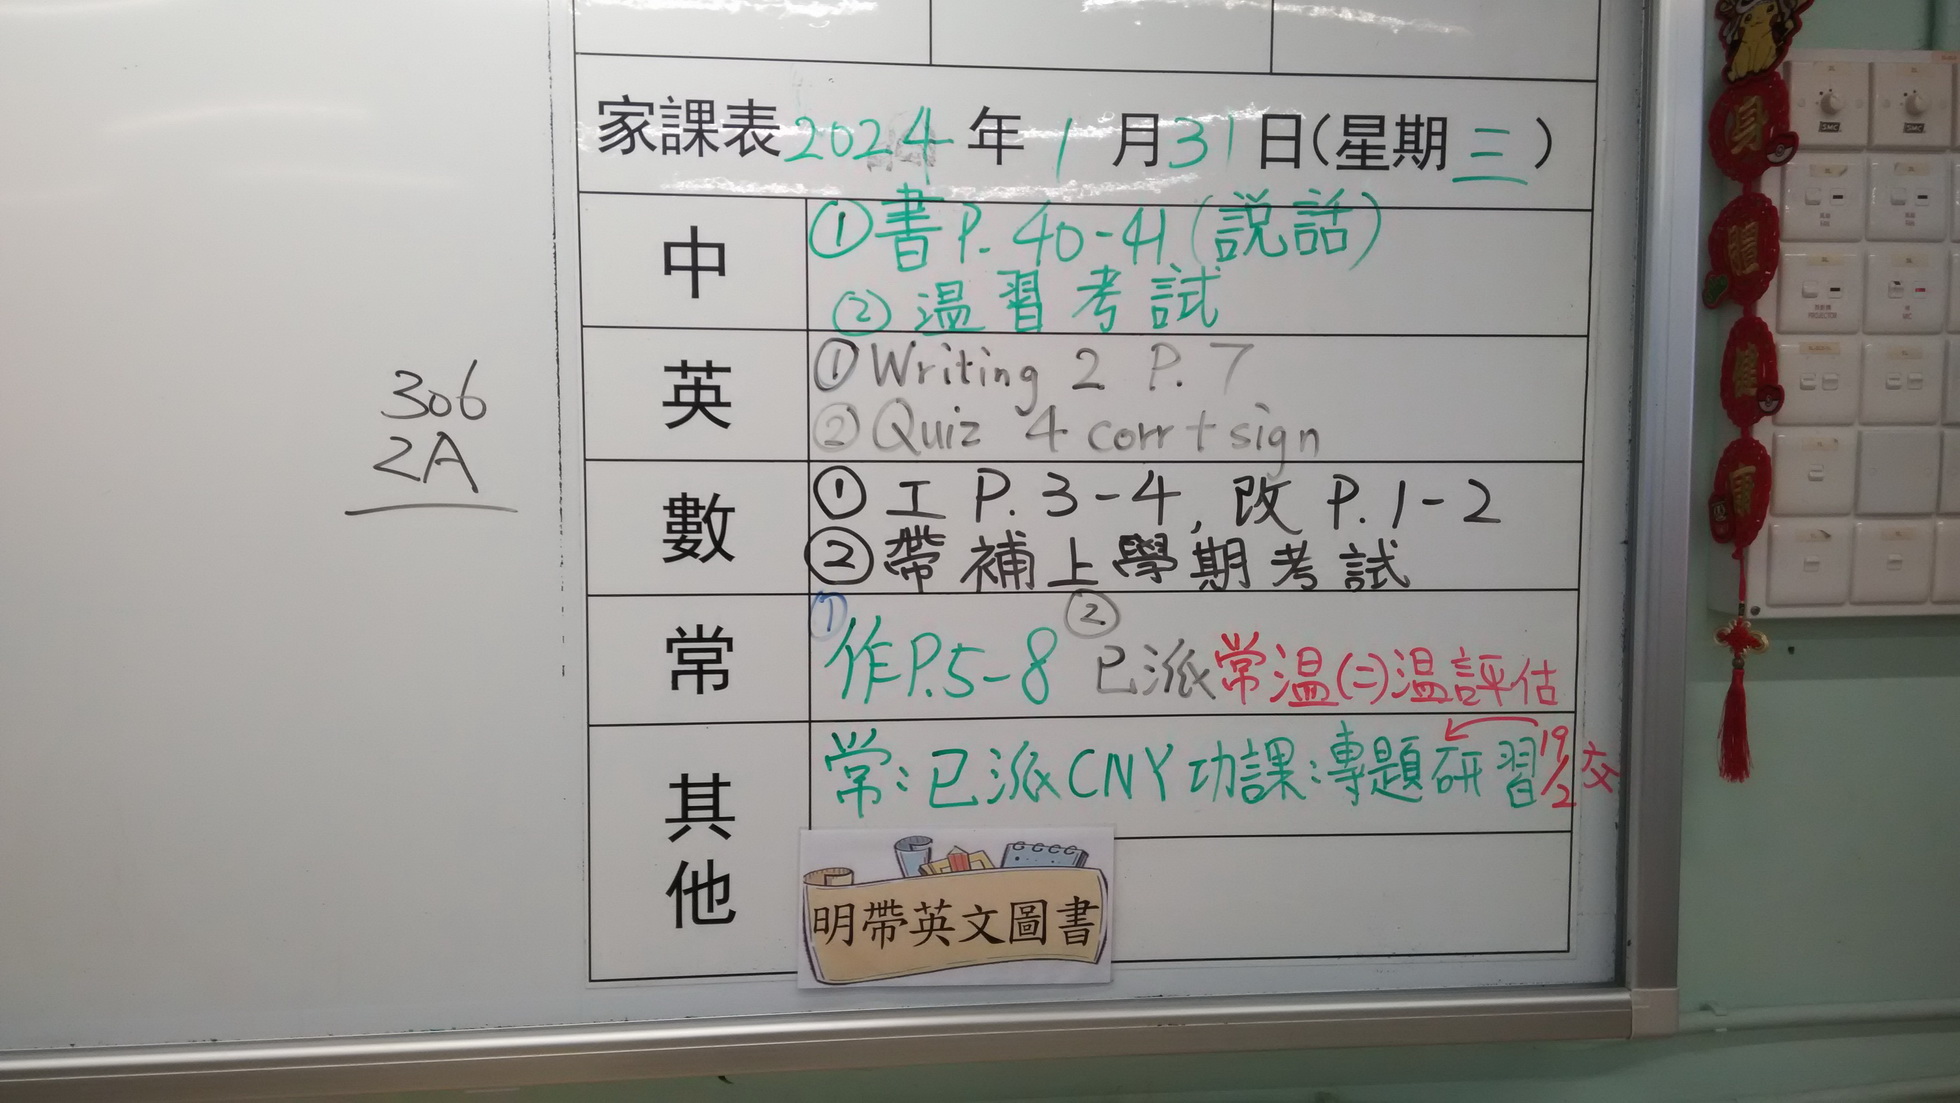 家課表2024年1月31日(星期三)
中
①書P.40-41(説話)
②温習考試
英
①Writing 2 P.7
②Quiz 4 corr+sign
數
①工P.3-4,改P.1-2
②帶補上學期考試
常
①作P.5-8 ②已派常温(二)温評估
其他
常:已派CNY功課:專題研習19/2交
明帶英文圖書
306
2A
身體健康
PROJECTOR